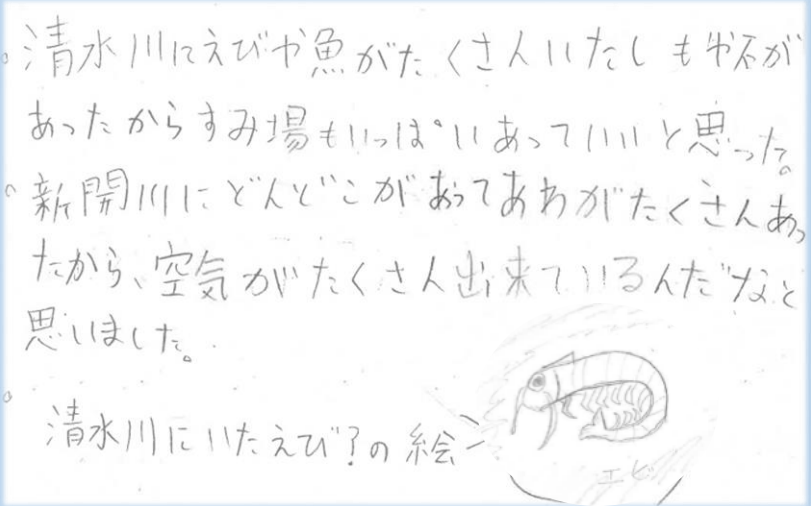 。清水川にえびや魚がたくさんいたしも があったからすみ場もいっぱいあっていいと思った。
。新開川にどんどこがあってあわがたくさんあっ
たから、空気がたくさん出来ているんだなと
思いました。
。清水川にいたえび?の絵
エビ